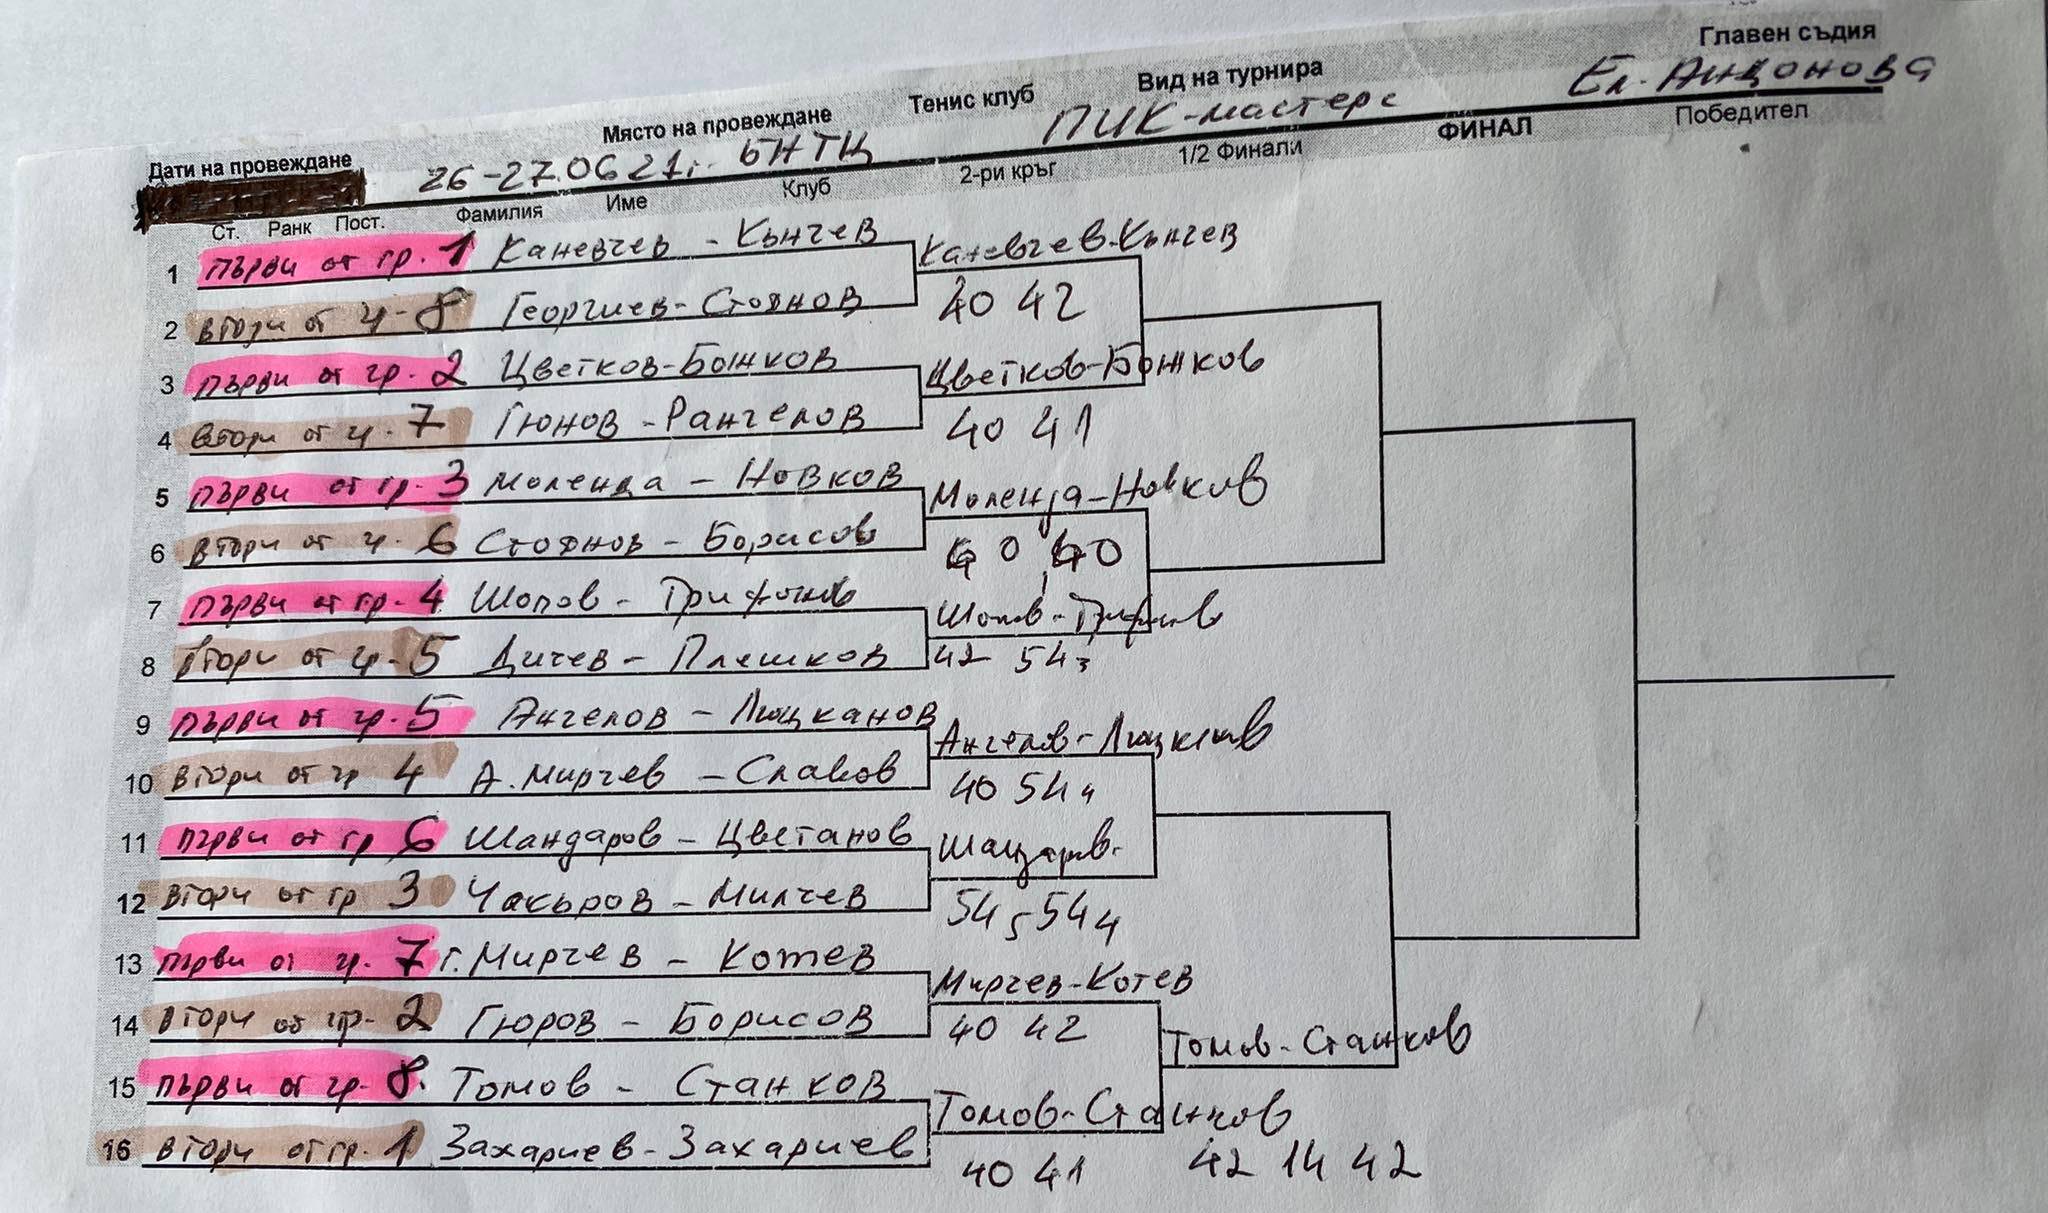 Главен съдия
Вид на турнира
Ел. Андонова
Тенис клуб
ПИК-мастерс
Място на провеждане
Победител
ФИНАЛ
Дати на провеждане
26-27.06 21г. БНТЦ
1/2 Финали
2-ри кръг
Ст. Ранк Пост. Фамилия Име Клуб
1 първи от гр. 1 Каневчев - Кънчев
Каневчев-Кънчев
2 втори от гр - 8 Георгиев-Стоянов
40 42
3 първи от гр. 2 Цветков-Божков
Цветков-Божков
4 втори от гр. 7 Гюнов - Рангелов
40 41
5 първи от гр. 3 Моленда - Новков
Моленда-Новков
6 втори от гр. 6 Стоянов - Борисов
40 40
7 първи от гр. 4 Шопов - Трифонов
Шопов-Трифонов
8 втори от гр. 5 Дичев - Плешков
42 54 3
9 първи от гр. 5 Ангелов - Люцканов
Ангелов-Люцканов
10 втори от гр 4 А. Мирчев - Славов
40 54 4
11 първи от гр 6 Шандаров - Цветанов
Шандаров-
12 втори от гр 3 Чакъров - Милчев
54 5 54 4
13 първи от гр. 7 Г. Мирчев - Котев
Мирчев-Котев
14 втори от гр. 2 Гюров - Борисов
40 42
Томов-Станков
15 първи от гр. 8. Томов - Станков
Томов-Станков
16 втори от гр. 1 Захариев-Захариев
40 41
42 14 42